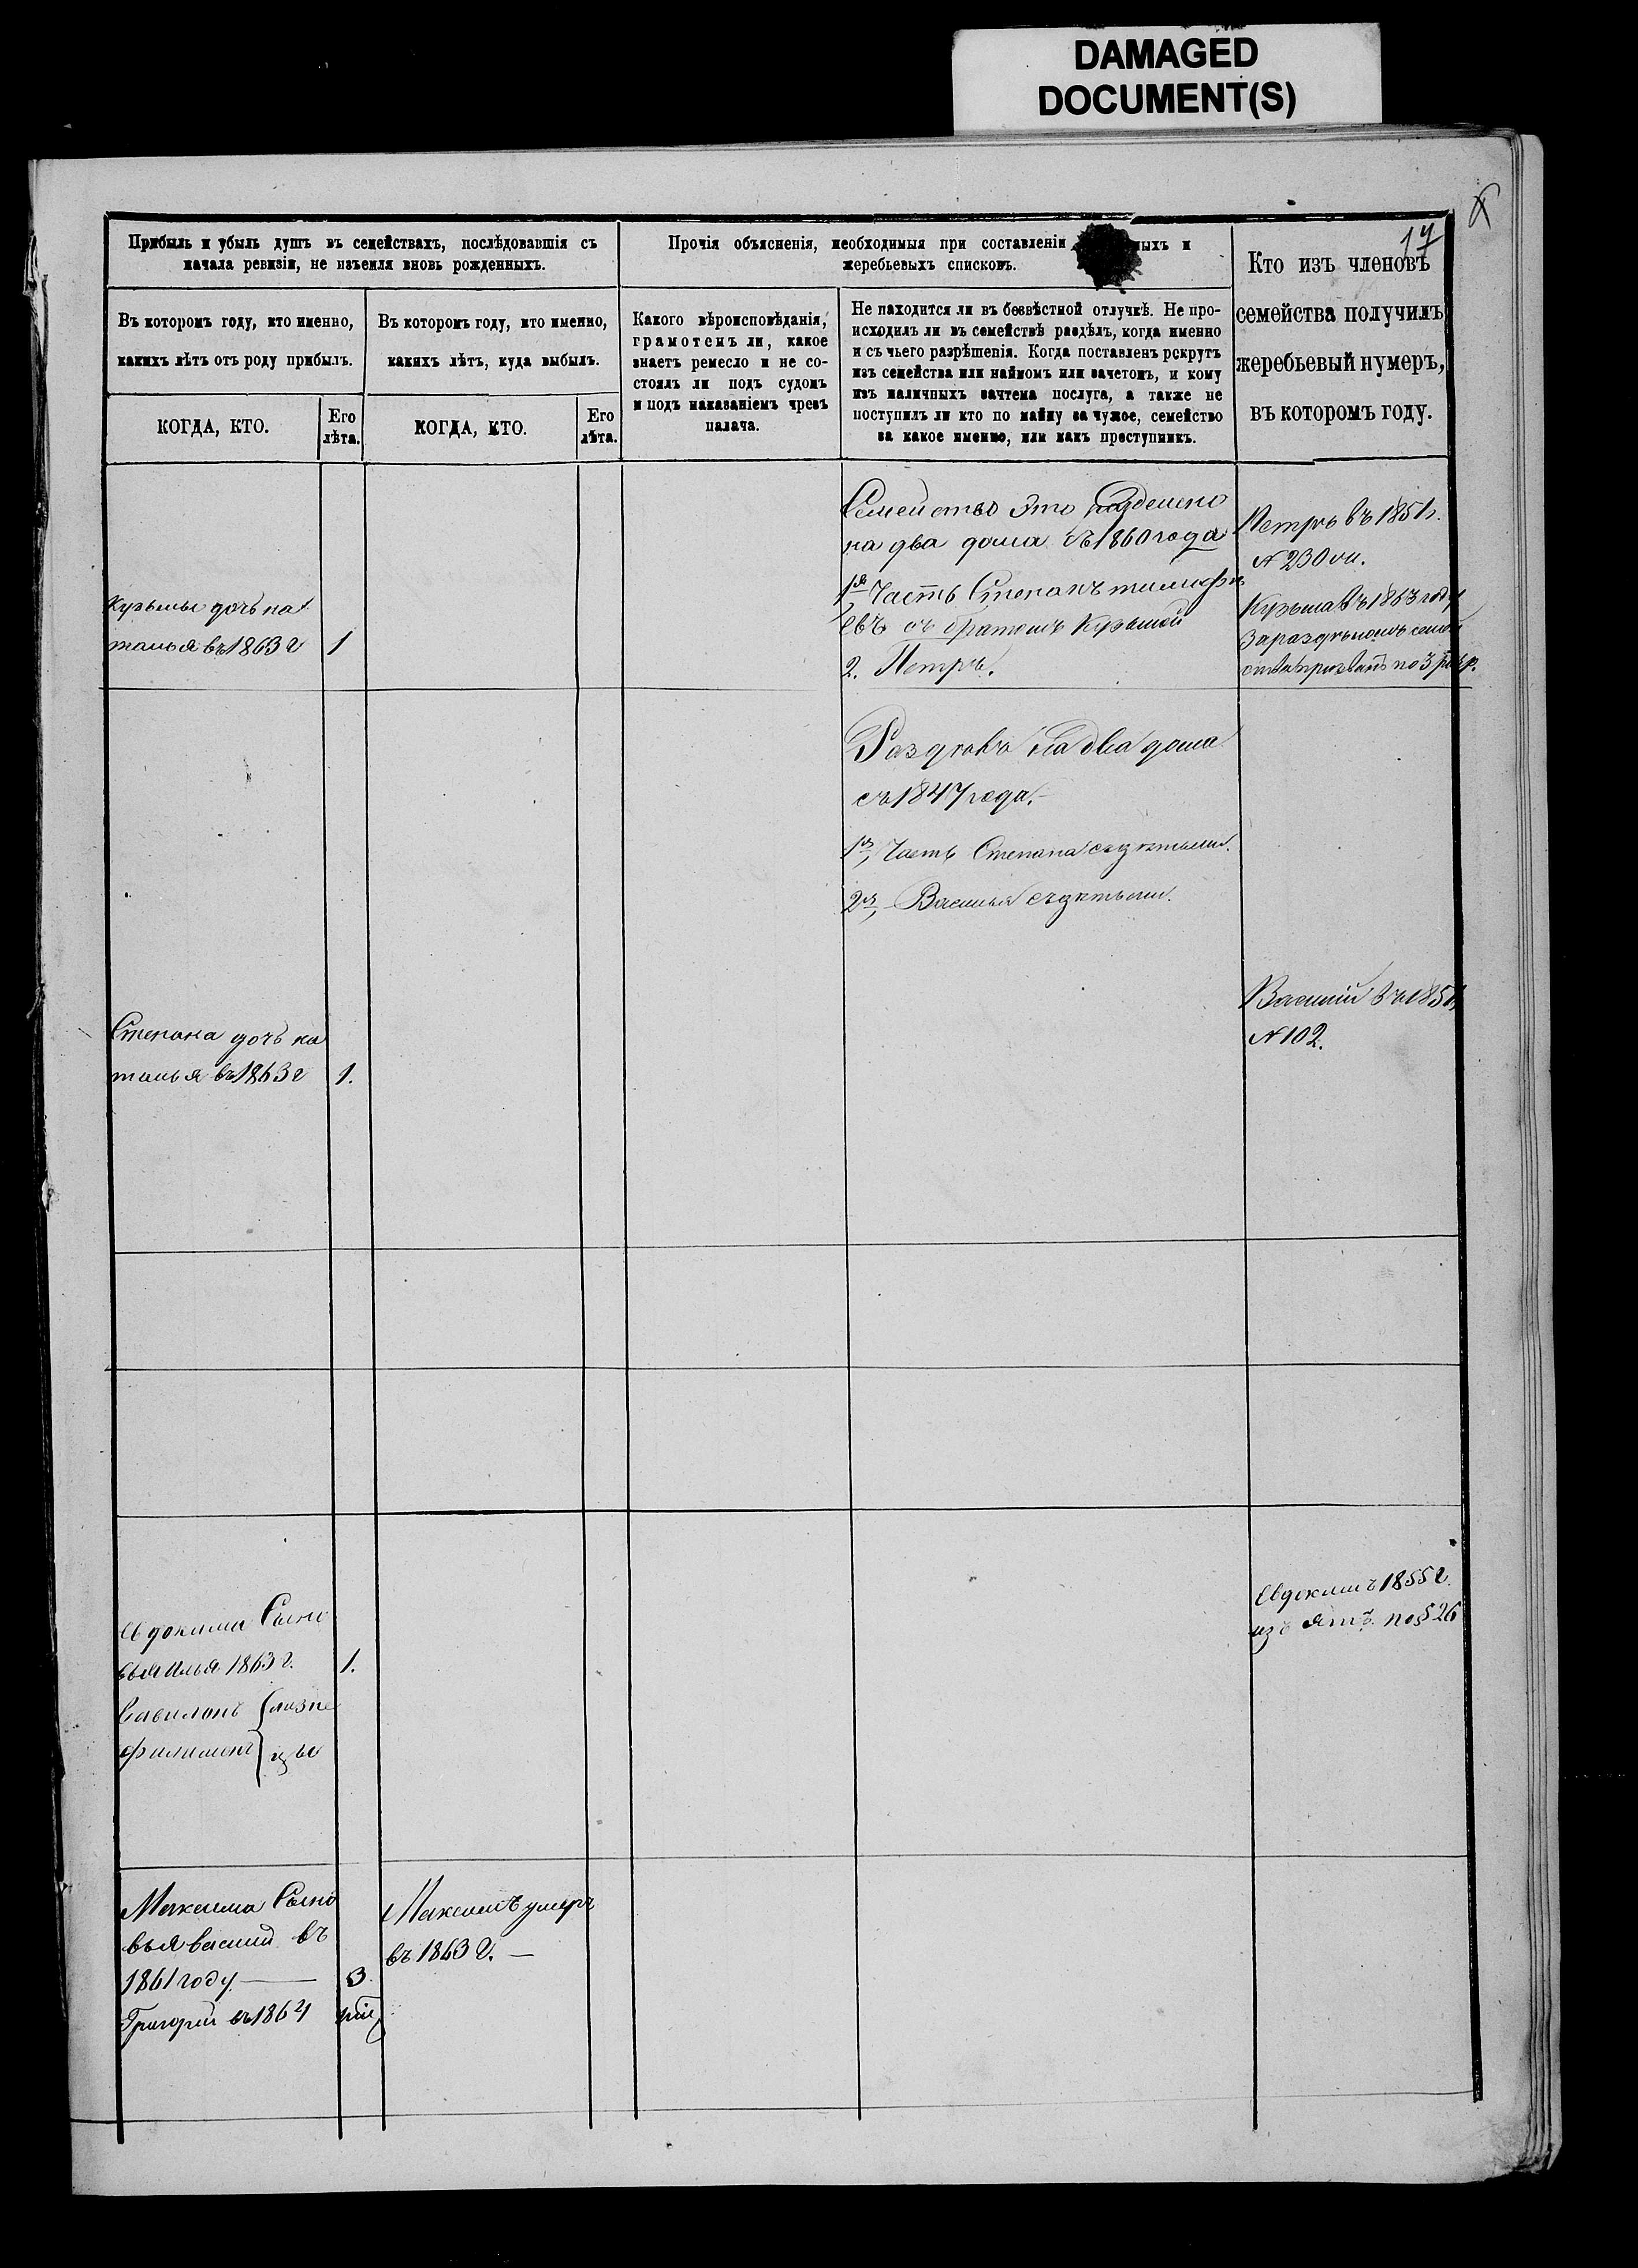 DAMAGED
DOCUMENT(S)
17
Прибыль и убыль душъ въ семействахъ, послѣдовавшія съ
начала ревизіи, не изъемля вновь рожденныхъ.
Прочія объясненія, необходимыя при составленіи ныхъ и
жеребьевыхъ списковъ.
Кто изъ членовъ
семейства получилъ
жеребьевый нумеръ,
въ которомъ году.
Въ которомъ году, кто именно,
какихъ лѣтъ отъ роду прибылъ.
Въ которомъ году, кто именно,
какихъ лѣтъ, куда выбылъ.
Какого вѣроисповѣданія,
грамотенъ ли, какое
знаетъ ремесло и не со-
стоялъ ли подъ судомъ
и подъ наказаніемъ чрезъ
палача.
Не находится ли въ безвѣстной отлучкѣ. Не про-
исходилъ ли въ семействѣ раздѣлъ, когда именно
и съ чьего разрѣшенія. Когда поставленъ рекрутъ
изъ семейства или наймомъ или зачетомъ, и кому
изъ наличныхъ зачтена послуга, а также не
поступилъ ли кто по найму за чужое, семейство
за какое именно, или какъ преступникъ.
КОГДА, КТО.
Его
лѣта.
КОГДА, КТО.
Его
лѣта.
Кузьмы дочь на
талья въ 1863 г 1
Семейство Это разделено
на два дома съ 1860 года
1я Часть Степанъ тимофѣ
евъ съ братомъ Кузьмой
2. Петръ.
Петръ въ 1851 г.
N 230
Кузьма въ 1863 году
За раздѣломъ семей
ства призванъ по 3
Раздѣлъ на два дома
съ 1847 года.
1я, Часть Степана съ дѣтьми.
2я, Василья съ дѣтьми.
Степана дочь на
талья въ 1863 г 1.
Василій въ 1851
N 102.
Евдокима Сыно
вья Илья 1863 г. 1.
Вавилонъ близне
Филимонъ цы
Евдокимъ 1855 г.
изъ по § 26
Максима Сыно
вья василий въ
1861 году — 3.
Григорий въ 1864
Максимъ умеръ
въ 1863 г. —